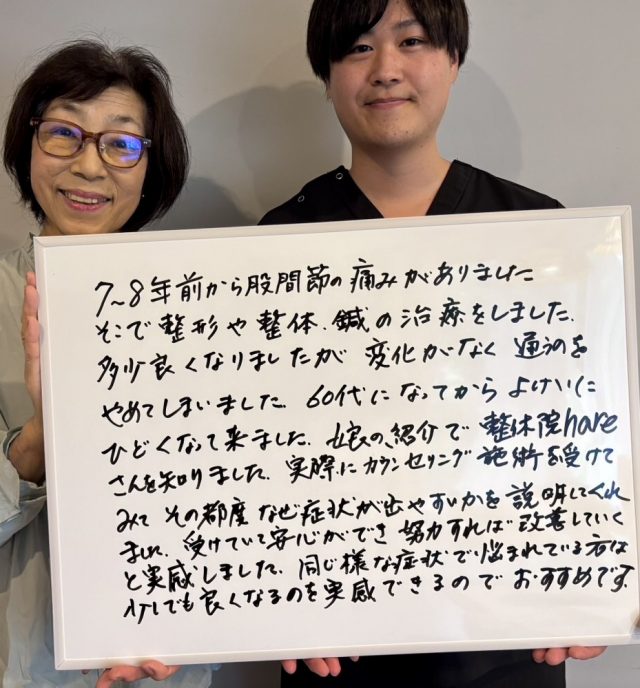 7~8年前から股間節の痛みがありました
そこで整形や整体、鍼の治療をしました.
多少良くなりましたが 変化がなく 通うのを
やめてしまいました. 60代になってから よけいに
ひどくなって来ました. 娘の紹介で 整体院hare
さんを知りました. 実際にカウンセリング 施術を受けて
みて その都度 なぜ症状が出やすいかを 説明してくれ
ました. 受けていて安心ができ 努力すれば 改善していく
と実感しました. 同じ様な症状で悩まれている方は
少しでも良くなるのを実感できるので おすすめです.